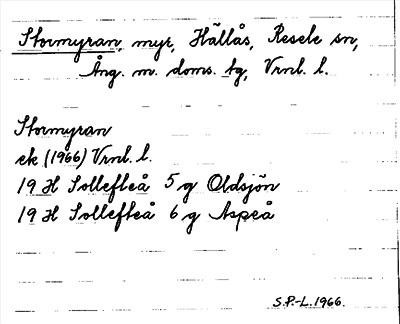 Stormyran, myr, Hällås, Resele sn,
Ång. m. doms. tg, Vrnl. l.
Stormyran
ek (1966) Vrnl. l.
19 H Sollefteå 5 g Oldsjön
19 H Sollefteå 6 g Aspeå
S.P.-L. 1966.